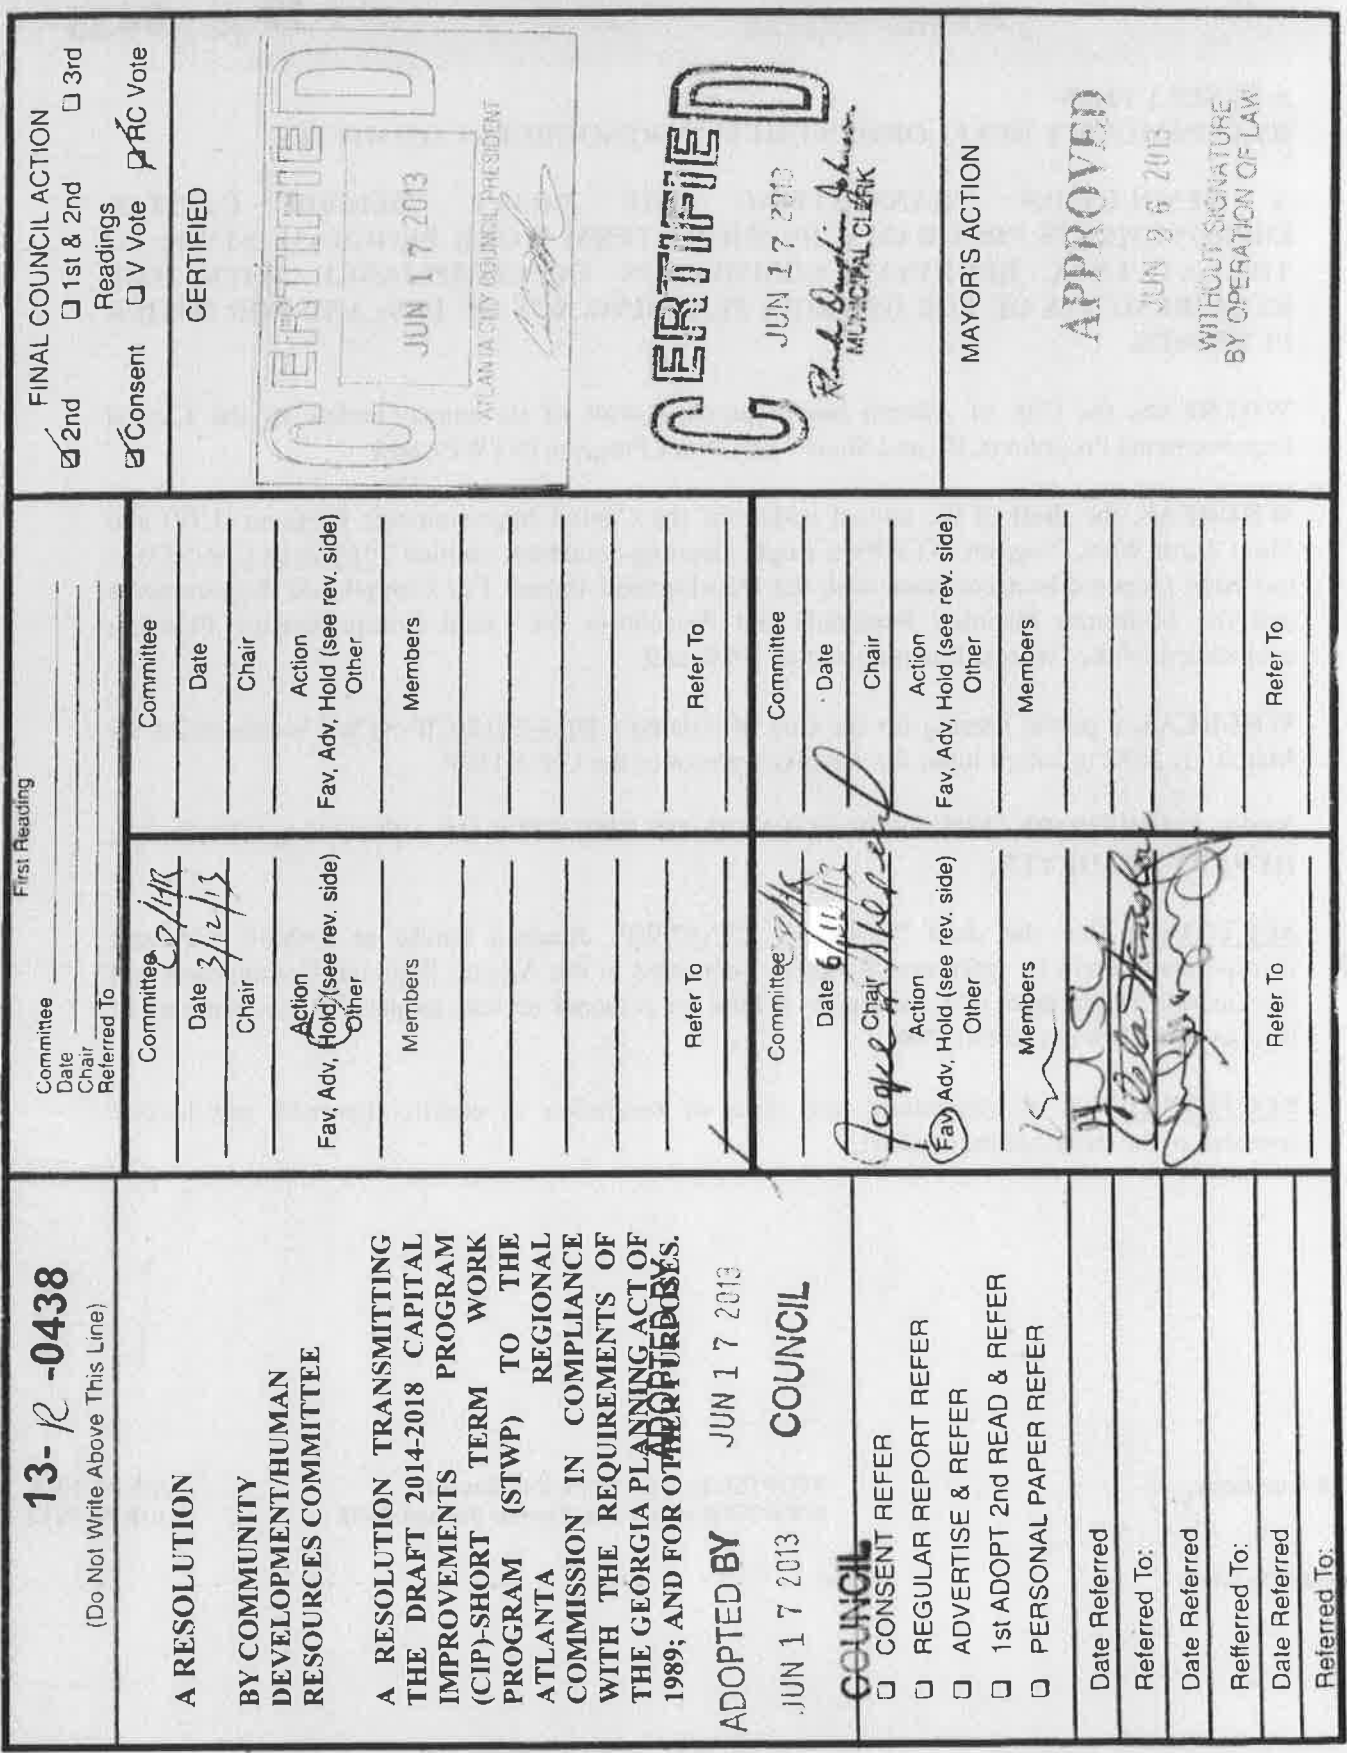 13- R -0438
(Do Not Write Above This Line)
A RESOLUTION
BY COMMUNITY
DEVELOPMENT/HUMAN
RESOURCES COMMITTEE
A RESOLUTION TRANSMITTING
THE DRAFT 2014-2018 CAPITAL
IMPROVEMENTS PROGRAM
(CIP)-SHORT TERM WORK
PROGRAM (STWP) TO THE
ATLANTA REGIONAL
COMMISSION IN COMPLIANCE
WITH THE REQUIREMENTS OF
THE GEORGIA PLANNING ACT OF
1989; AND FOR OTHER PURPOSES.
ADOPTED BY
JUN 17 2013
COUNCIL
ADOPTED BY
JUN 17 2013
COUNCIL
☐ CONSENT REFER
☐ REGULAR REPORT REFER
☐ ADVERTISE & REFER
☐ 1st ADOPT 2nd READ & REFER
☐ PERSONAL PAPER REFER
Date Referred
Referred To:
Date Referred
Refferred To:
Date Referred
Referred To:
First Reading
Committee
Date
Chair
Referred To
Committee CD/HR
Date 3/12/13
Chair
Action
Fav, Adv, Hold (see rev. side)
Other
Members
Refer To
Committee
Date
Chair
Action
Fav, Adv, Hold (see rev. side)
Other
Members
Refer To
Committee CD/HR
Date 6/11/13
Chair Joyce Sheperd
Action
Fav, Adv, Hold (see rev. side)
Other
Members
Refer To
Committee
Date
Chair
Action
Fav, Adv, Hold (see rev. side)
Other
Members
Refer To
FINAL COUNCIL ACTION
☑ 2nd ☐ 1st & 2nd ☐ 3rd
Readings
☑ Consent ☐ V Vote ☑ RC Vote
CERTIFIED
CERTIFIED
JUN 17 2013
ATLANTA CITY COUNCIL PRESIDENT
CERTIFIED
JUN 17 2013
Rhonda Dauphin Johnson
MUNICIPAL CLERK
MAYOR'S ACTION
APPROVED
JUN 26 2013
WITHOUT SIGNATURE
BY OPERATION OF LAW